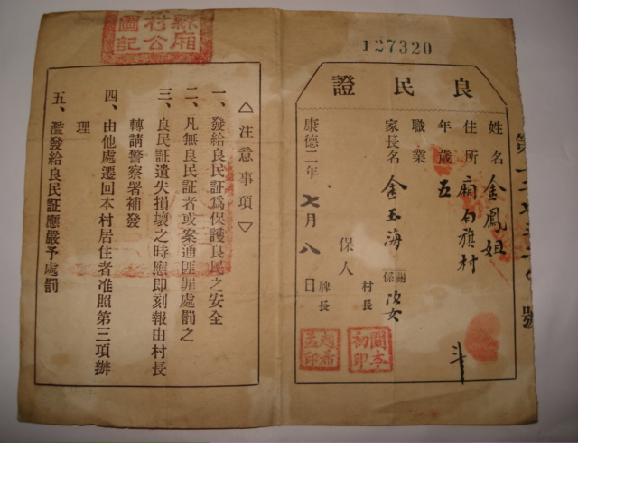 127320
良民證
姓名 金鳳姐
住所 廂白旗村
年歲 五
職業
家長名 金玉海 關係 次女
保人 村長 牌長
康德二年七月八日
縣廂
村公
圖記
△注意事項▽
一、發給良民証為保護良民之安全
二、凡無良民証者或案迪匪罪處罰之
三、良民証遺失損壞之時應即刻報由村長
轉請警察署補發
四、由他處遷回本村居住者准照第三項辦
理
五、濫發給良民証應嚴予處罰